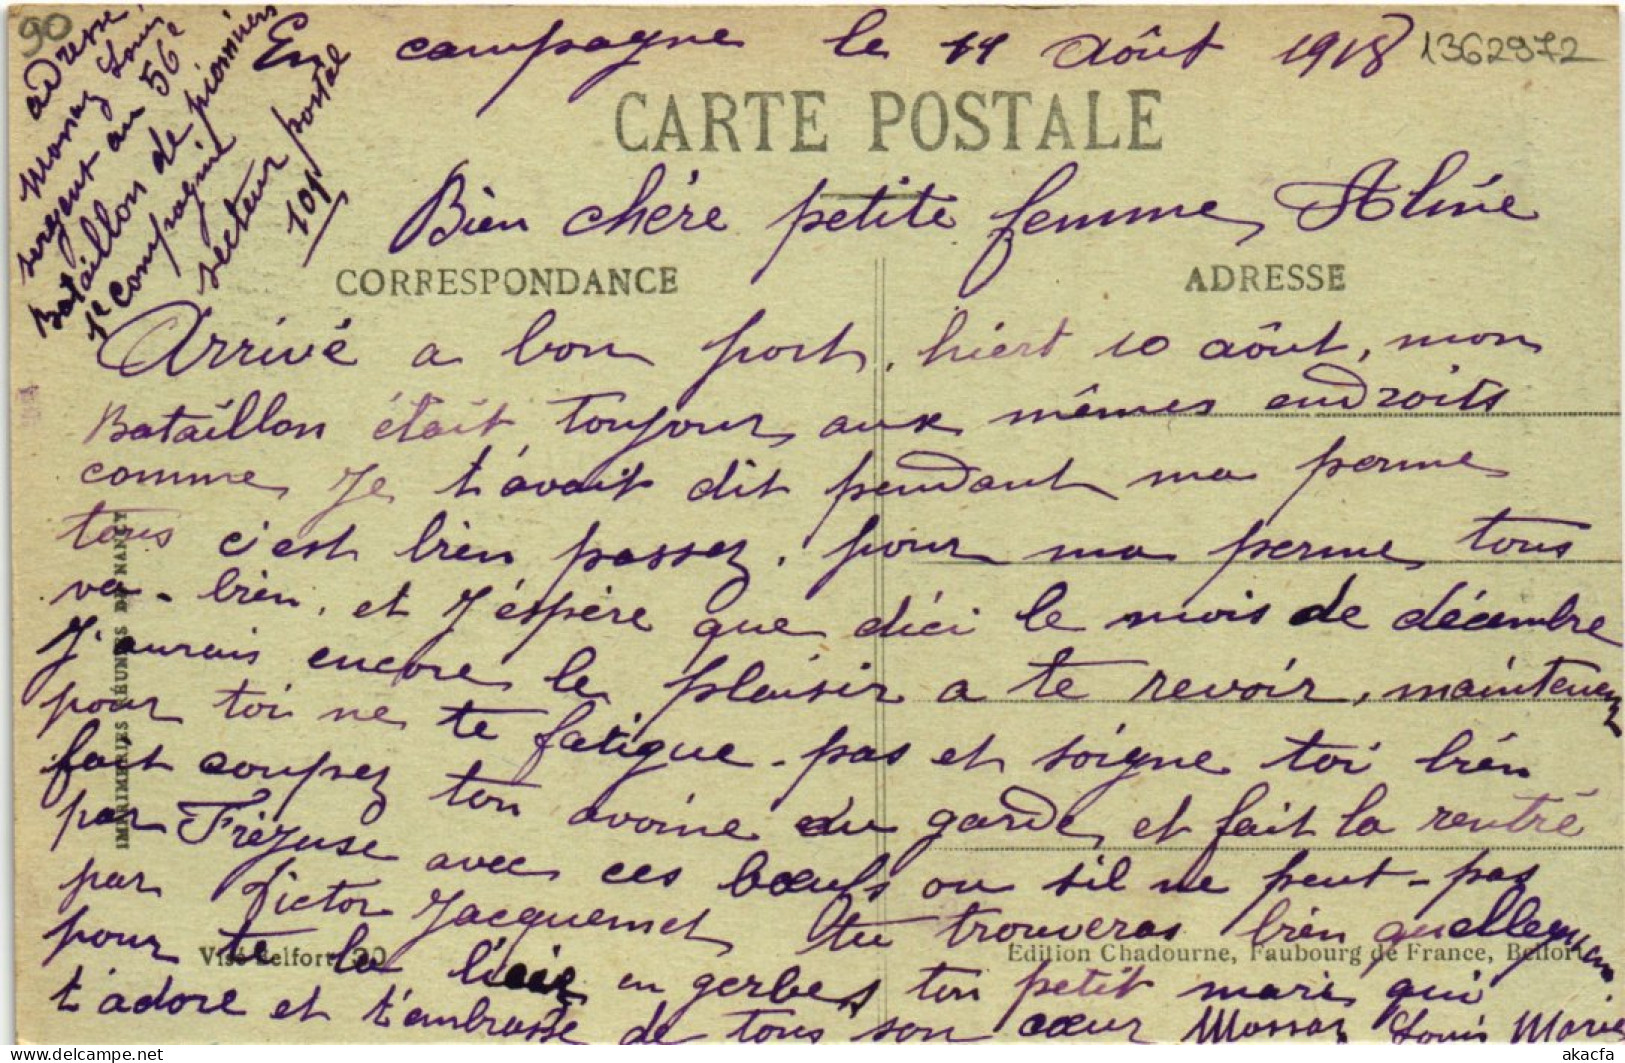 90
adresse,
Louis
sergent au 56e
Bataillon de pionniers
1e Compagnie
secteur postal
101
En campagne le 11 Août 1918
1362972
CARTE POSTALE
Bien chére petite femme, Aline
CORRESPONDANCE
ADRESSE
Arrivé a bon port, hiert 10 août, mon
Bataillon était toujour aux mêmes endroits
comme Je t'avait dit pendant ma perme
tous c'est bien passez, pour ma perme tous
va-bien, et J'éspère que d'ici le mois de décembre
J'aurais encore le plaisir a te revoir, maintenent
pour toi ne te fatigue-pas et soigne toi bien
fait coupez ton avoine au garde, et fait la rentré
par Frézuse avec ces bœufs ou sil ne peut-pas
par Victor Jacquemet, tu trouveras bien quellequ'un
pour te la liez en gerbes ton petit mari qui
t'adore et t'embrasse de tous son cœur Louis Marie
IMPRIMERIES RÉUNIES DE NANCY
Visé Belfort 30
Edition Chadourne, Faubourg de France, Belfort
akacfa